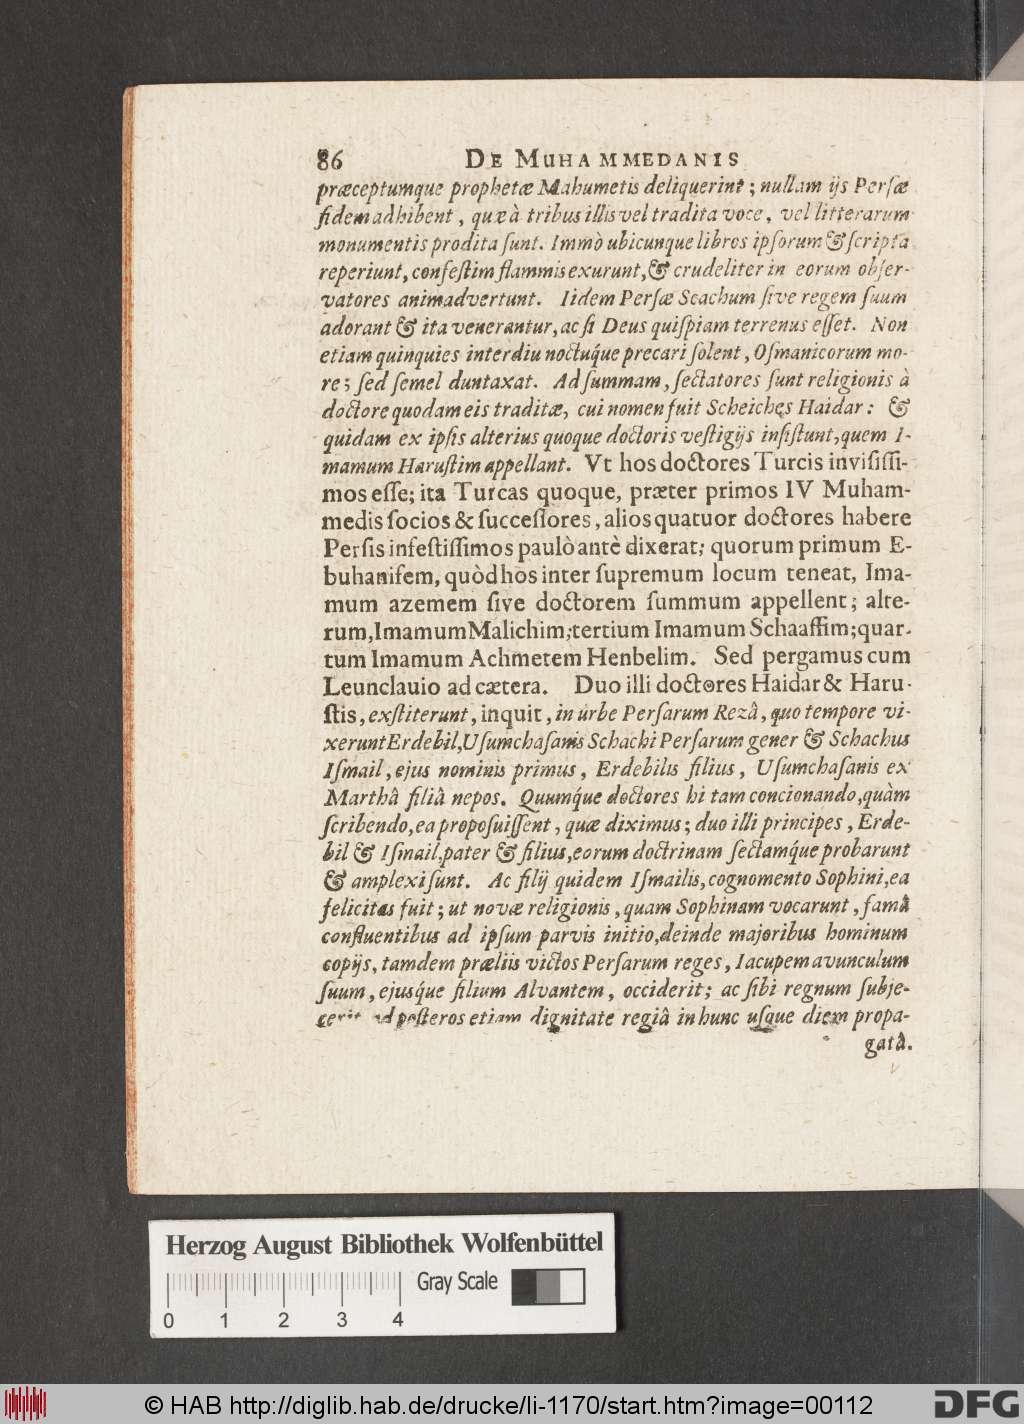 86 DE MUHAMMEDANIS
præceptumque prophetæ Mahumetis deliquerint; nullam ijs Persæ
fidem adhibent, quæ à tribus illis vel tradita voce, vel litterarum
monumentis prodita sunt. Immò ubicunque libros ipsorum & scripta
reperiunt, confestim flammis exurunt, & crudeliter in eorum obser-
vatores animadvertunt. Iidem Persæ Scachum sive regem suum
adorant & ita venerantur, ac si Deus quispiam terrenus esset. Non
etiam quinquies interdiu noctuq́ue precari solent, Osmanicorum mo-
re; sed semel duntaxat. Ad summam, sectatores sunt religionis à
doctore quodam eis traditæ, cui nomen fuit Scheiches Haidar: &
quidam ex ipsis alterius quoque doctoris vestigijs insistunt, quem I-
mamum Harustim appellant. Vt hos doctores Turcis invisissi-
mos esse; ita Turcas quoque, præter primos IV Muham-
medis socios & successores, alios quatuor doctores habere
Persis infestissimos paulò antè dixerat; quorum primum E-
buhanifem, quòd hos inter supremum locum teneat, Ima-
mum azemem sive doctorem summum appellent; alte-
rum, Imamum Malichim; tertium Imamum Schaaffim; quar-
tum Imamum Achmetem Henbelim. Sed pergamus cum
Leunclauio ad cætera. Duo illi doctores Haidar & Haru-
stis, exstiterunt, inquit, in urbe Persarum Rezâ, quo tempore vi-
xerunt Erdebil, Usumchasanis Schachi Persarum gener & Schachus
Ismail, ejus nominis primus, Erdebilis filius, Usumchasanis ex
Marthâ filiâ nepos. Quumq́ue doctores hi tam concionando, quàm
scribendo, ea proposuissent, quæ diximus; duo illi principes, Erde-
bil & Ismail, pater & filius, eorum doctrinam sectamq́ue probarunt
& amplexi sunt. Ac filij quidem Ismailis, cognomento Sophini, ea
felicitas fuit; ut novæ religionis, quam Sophinam vocarunt, famâ
confluentibus ad ipsum parvis initio, deinde majoribus hominum
copijs, tamdem præliis victos Persarum reges, Iacupem avunculum
suum, ejusq́ue filium Alvantem, occiderit; ac sibi regnum subje-
cerit ad posteros etiam dignitate regiâ in hunc usque diem propa-
gatâ.
Herzog August Bibliothek Wolfenbüttel
Gray Scale
0 1 2 3 4
© HAB http://diglib.hab.de/drucke/li-1170/start.htm?image=00112
DFG